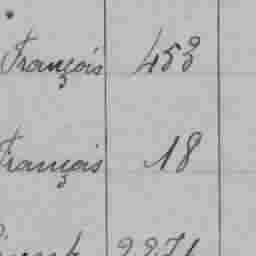 François 453
François 18
2271